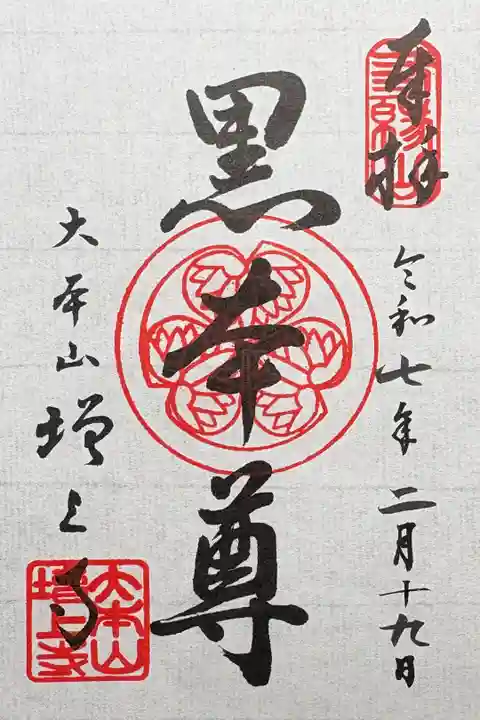 奉拝
三縁山
令和七年二月十九日
黒本尊
大本山増上寺
大本山
増上寺